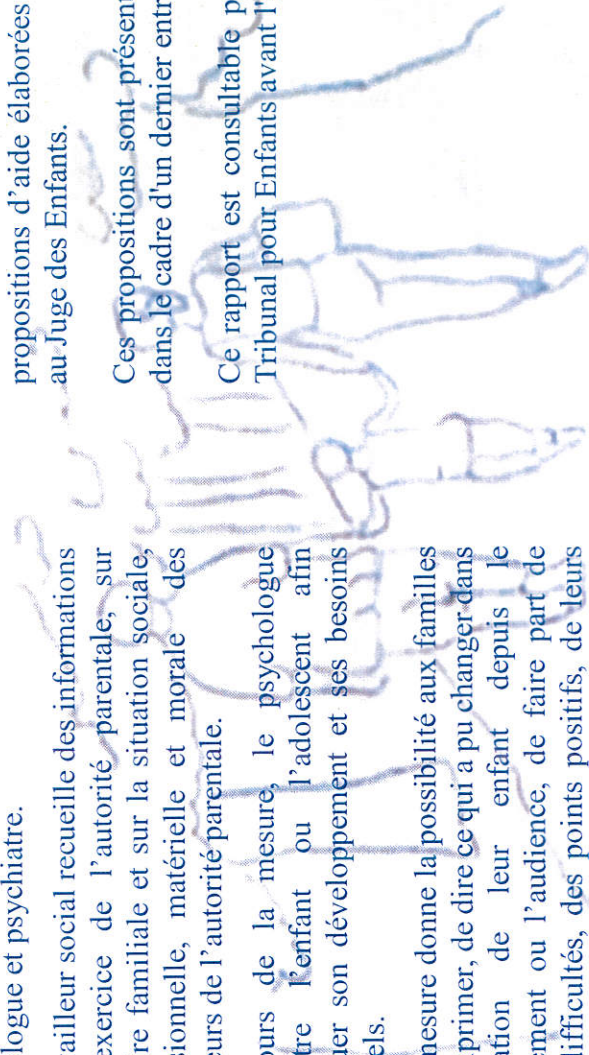 logue et psychiatre.
ailleur social recueille des informations
exercice de l’autorité parentale, sur
re familiale et sur la situation sociale,
sionnelle, matérielle et morale des
eurs de l’autorité parentale.
ours de la mesure, le psychologue
tre l’enfant ou l’adolescent afin
uer son développement et ses besoins
els.
mesure donne la possibilité aux familles
primer, de dire ce qui a pu changer dans
ation de leur enfant depuis le
ment ou l’audience, de faire part de
difficultés, des points positifs, de leurs
propositions d’aide élaborées
au Juge des Enfants.
Ces propositions sont présen
dans le cadre d'un dernier entr
Ce rapport est consultable p
Tribunal pour Enfants avant l'